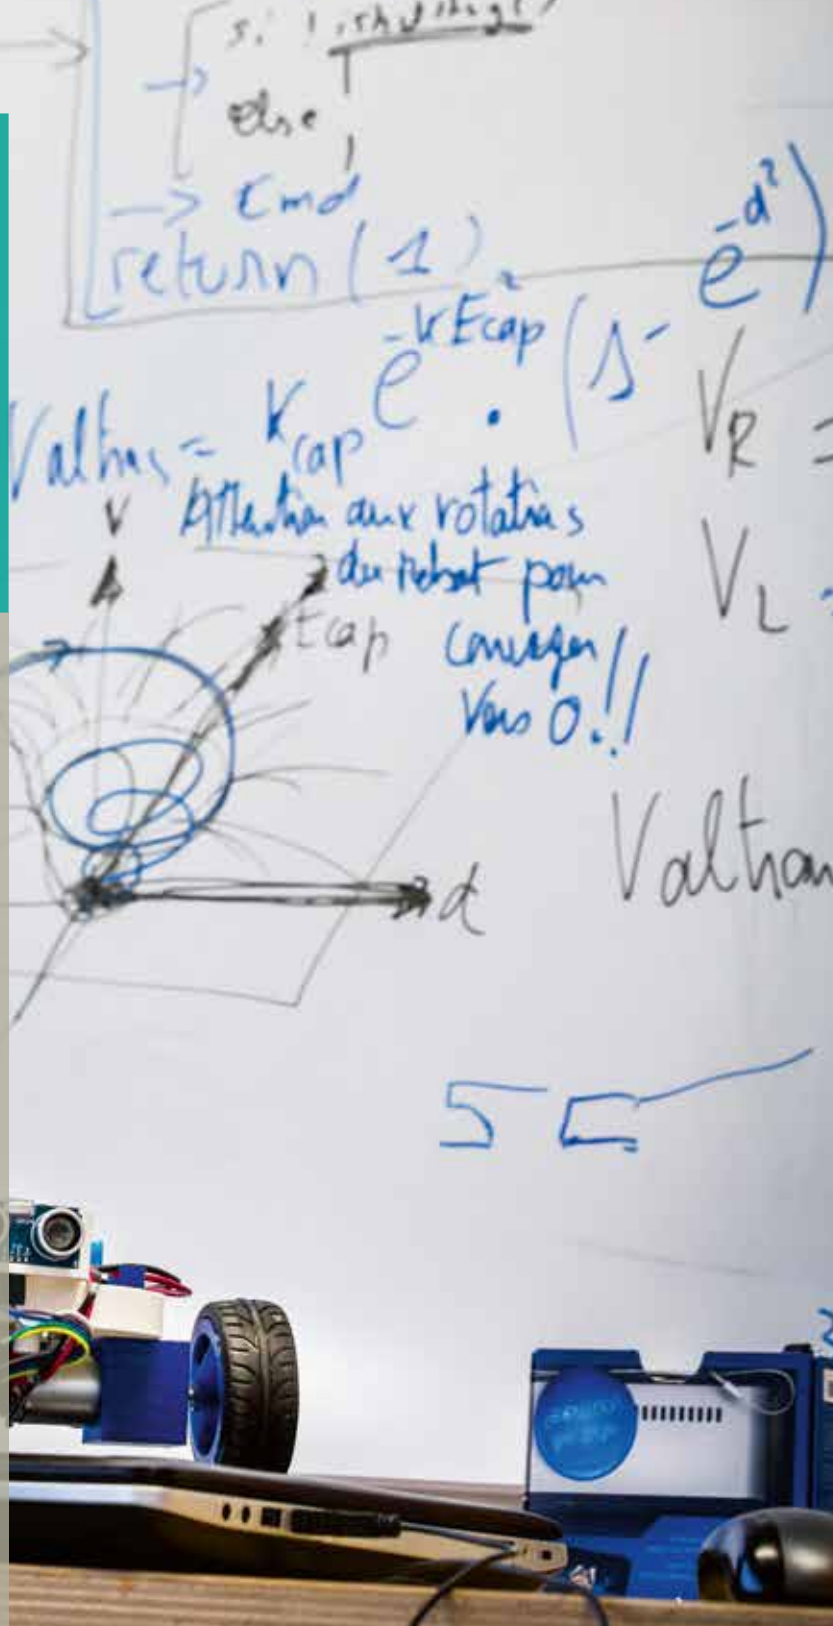 else
→ Cmd
return (1)
Valtrans = Kcap e^-kEcap² . (1 - e^-d²)
VR =
Attention aux rotations
V
du robot pour
VL
Ecap
converger
vers 0.!!
Valtran
d